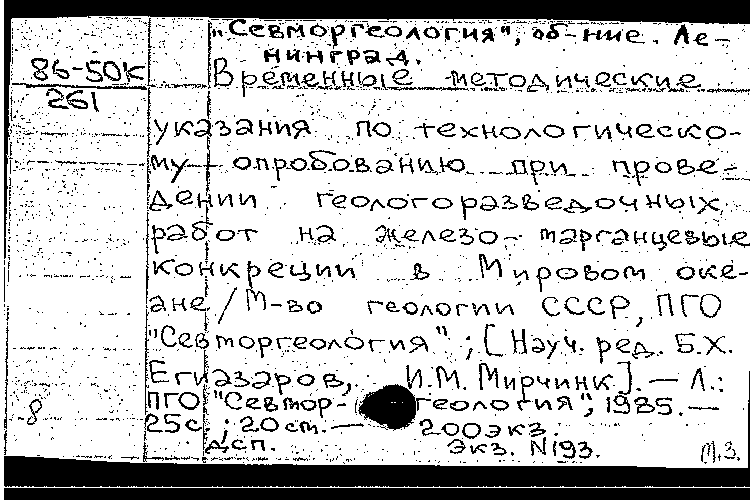 "Севморгеология", об-ние. Ле-
нинград.
86-50К
261
Временные методические
указания по технологическо-
му опробованию при прове-
дении геологоразведочных
работ на железо-марганцевые
конкреции в Мировом оке-
ане / М-во геологии СССР, ПГО
"Севморгеология"; [Науч. ред. Б.Х.
Егиазаров, И.М. Мирчинк]. — Л.:
ПГО "Севмор-геология", 1985. —
25с.; 20 ст. — 200 экз.
дсп. Экз. N193.
8
М.З.